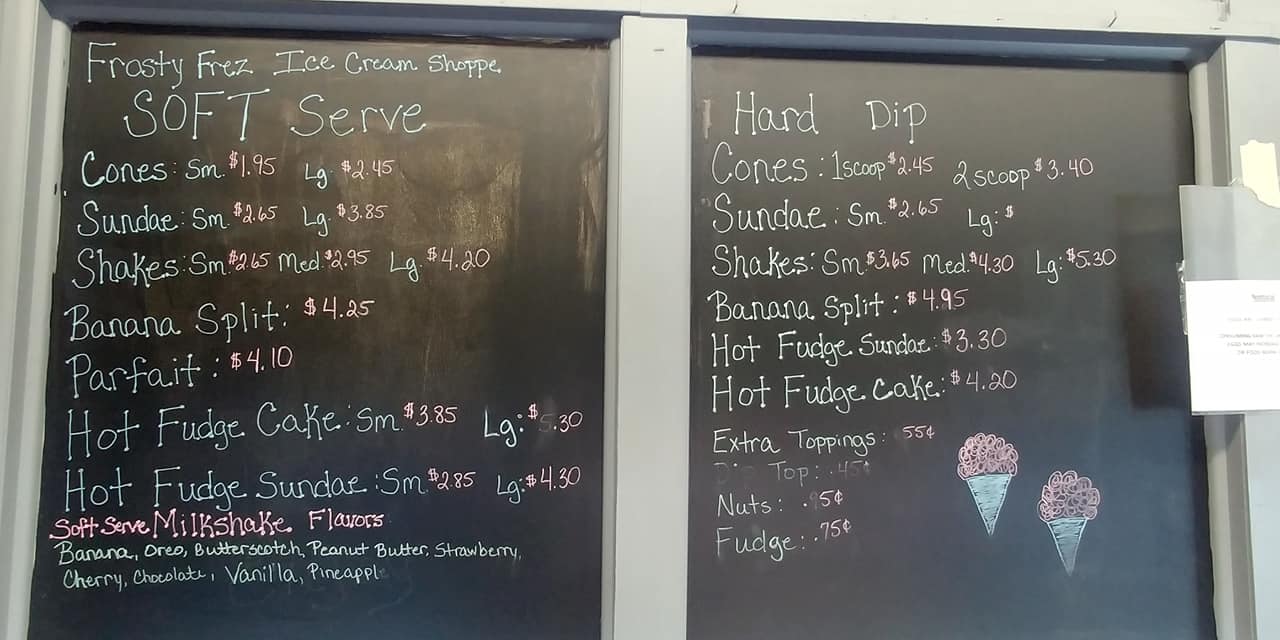 Frosty Frez Ice Cream Shoppe
SOFT Serve
Cones: Sm. $1.95 Lg. $2.45
Sundae: Sm. $2.65 Lg. $3.85
Shakes: Sm. $2.65 Med. $2.95 Lg. $4.20
Banana Split: $4.25
Parfait: $4.10
Hot Fudge Cake: Sm. $3.85 Lg: $5.30
Hot Fudge Sundae: Sm. $2.85 Lg: $4.30
Soft Serve Milkshake Flavors
Banana, Oreo, Butterscotch, Peanut Butter, Strawberry,
Cherry, Chocolate, Vanilla, Pineapple
Hard Dip
Cones: 1 scoop $2.45 2 scoop $3.40
Sundae: Sm. $2.65 Lg: $
Shakes: Sm. $3.65 Med. $4.30 Lg: $5.30
Banana Split: $4.95
Hot Fudge Sundae: $3.30
Hot Fudge Cake: $4.20
Extra Toppings: 55¢
Dip Top: .45¢
Nuts: .95¢
Fudge: .75¢